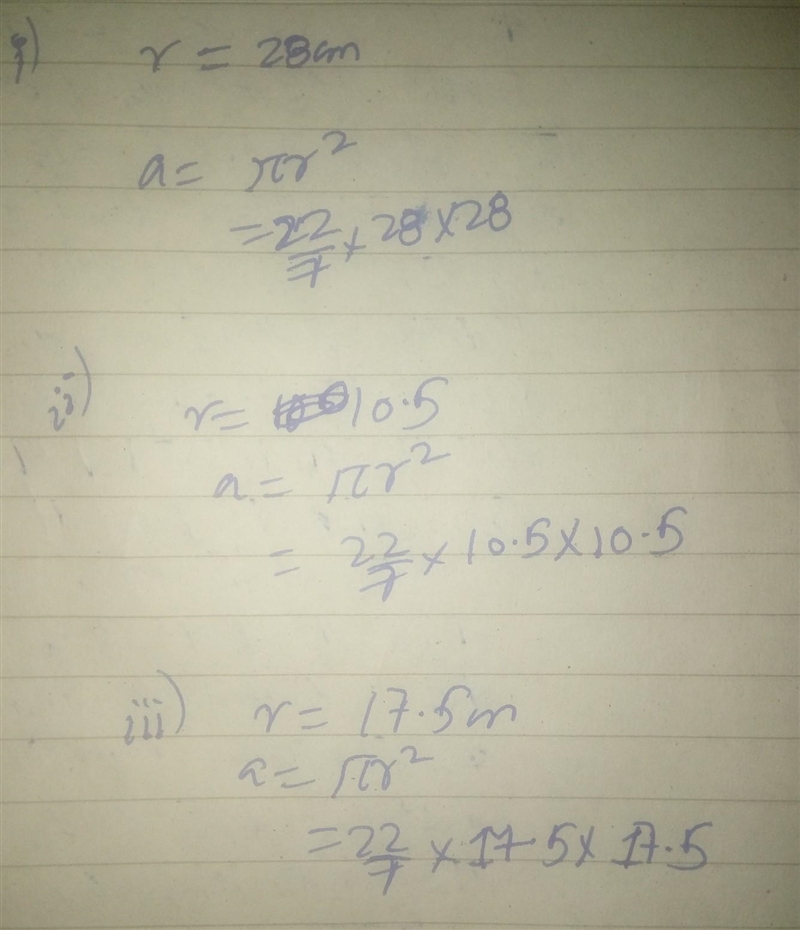 i) r = 28cm
a = πr²
= 22/7 × 28 × 28
ii) r = 10.5
a = πr²
= 22/7 × 10.5 × 10.5
iii) r = 17.5m
a = πr²
= 22/7 × 17.5 × 17.5